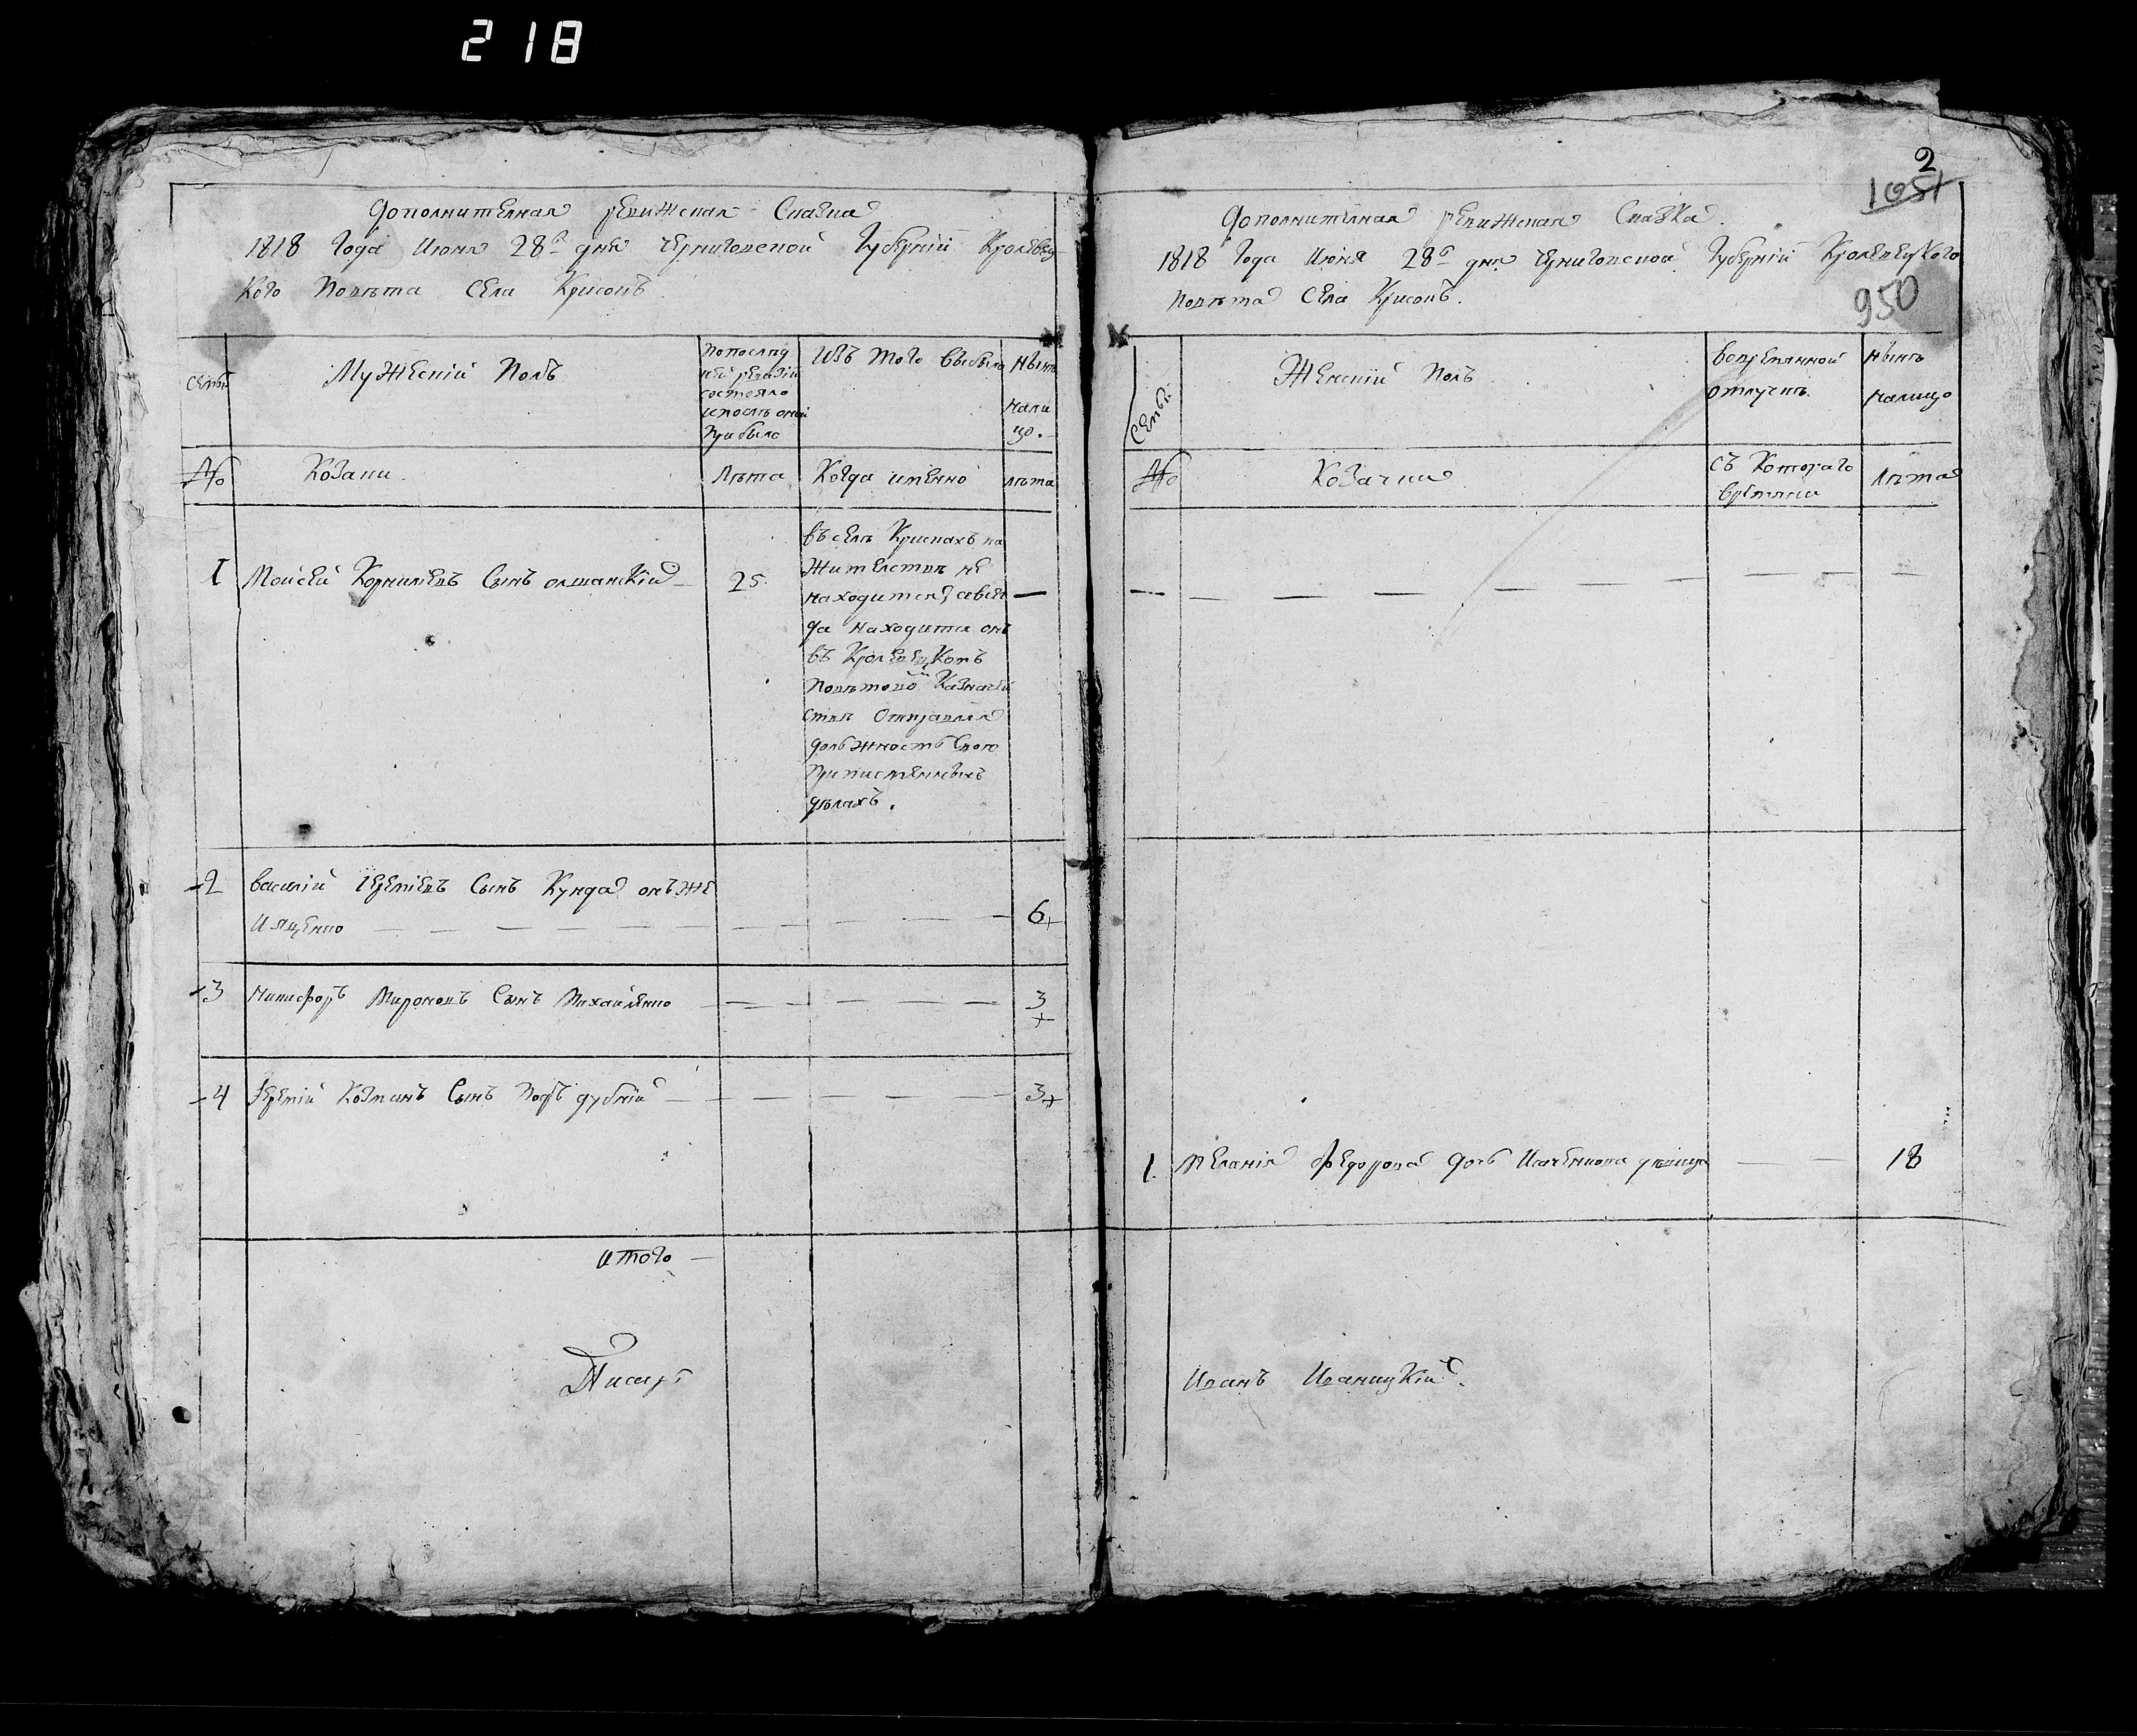 218
Дополнителная ревижская Сказка
1818 Года Июня 28го дня черниговской Губерніи Кролевец-
Кого Повѣта Села Крисокъ.
Семьи
Мужескій Полъ
По послѣд
ней ревизіи
состояло
и послѣ оной
прибыло
Изъ того выбыло
Нынѣ
нали
цо.
№
Козаки.
Лѣта
Когда именно
лѣта
1 Мойсей Корнилевъ Сынъ олшанскій 25.
въ селѣ Крискахъ на
Жителствѣ не
находится, а всег
да находится онъ
въ Кролевецкомъ
Повѣтовом Казначей
ствѣ Отправляя
должность Свою
при писменныхъ
дѣлахъ.
2 василій Іеремевъ Сынъ Кунда онъ же
и ященко 6
3 Никифоръ Мироновъ Сынъ Михайленко 3
4 Іеремій Козминъ Сынъ Подъ дубній 3
итого
Писарь
2
1051
950
Дополнителная ревижская Сказка.
1818 Года Июня 28го дня черниговской Губерніи Кролевецкого
Повѣта Села Крисокъ.
Семьи
Женскій Полъ
во временной
отлучкѣ.
Нынѣ
налицо
№
Козачки
съ Котораго
времени
Лѣта
1. Меланія Федорова дочь Исаченкова девица 18
Иванъ Иваницкій.